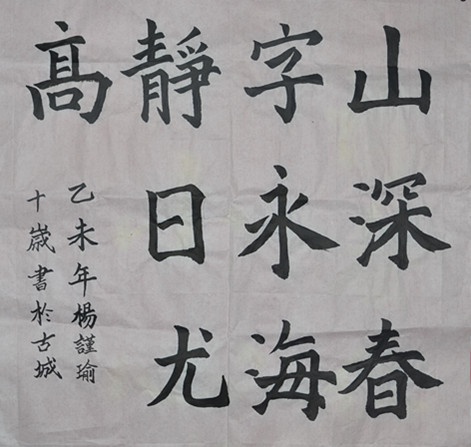 山深春
字永海
靜日尤
髙
乙未年楊謹瑜
十歲書於古城